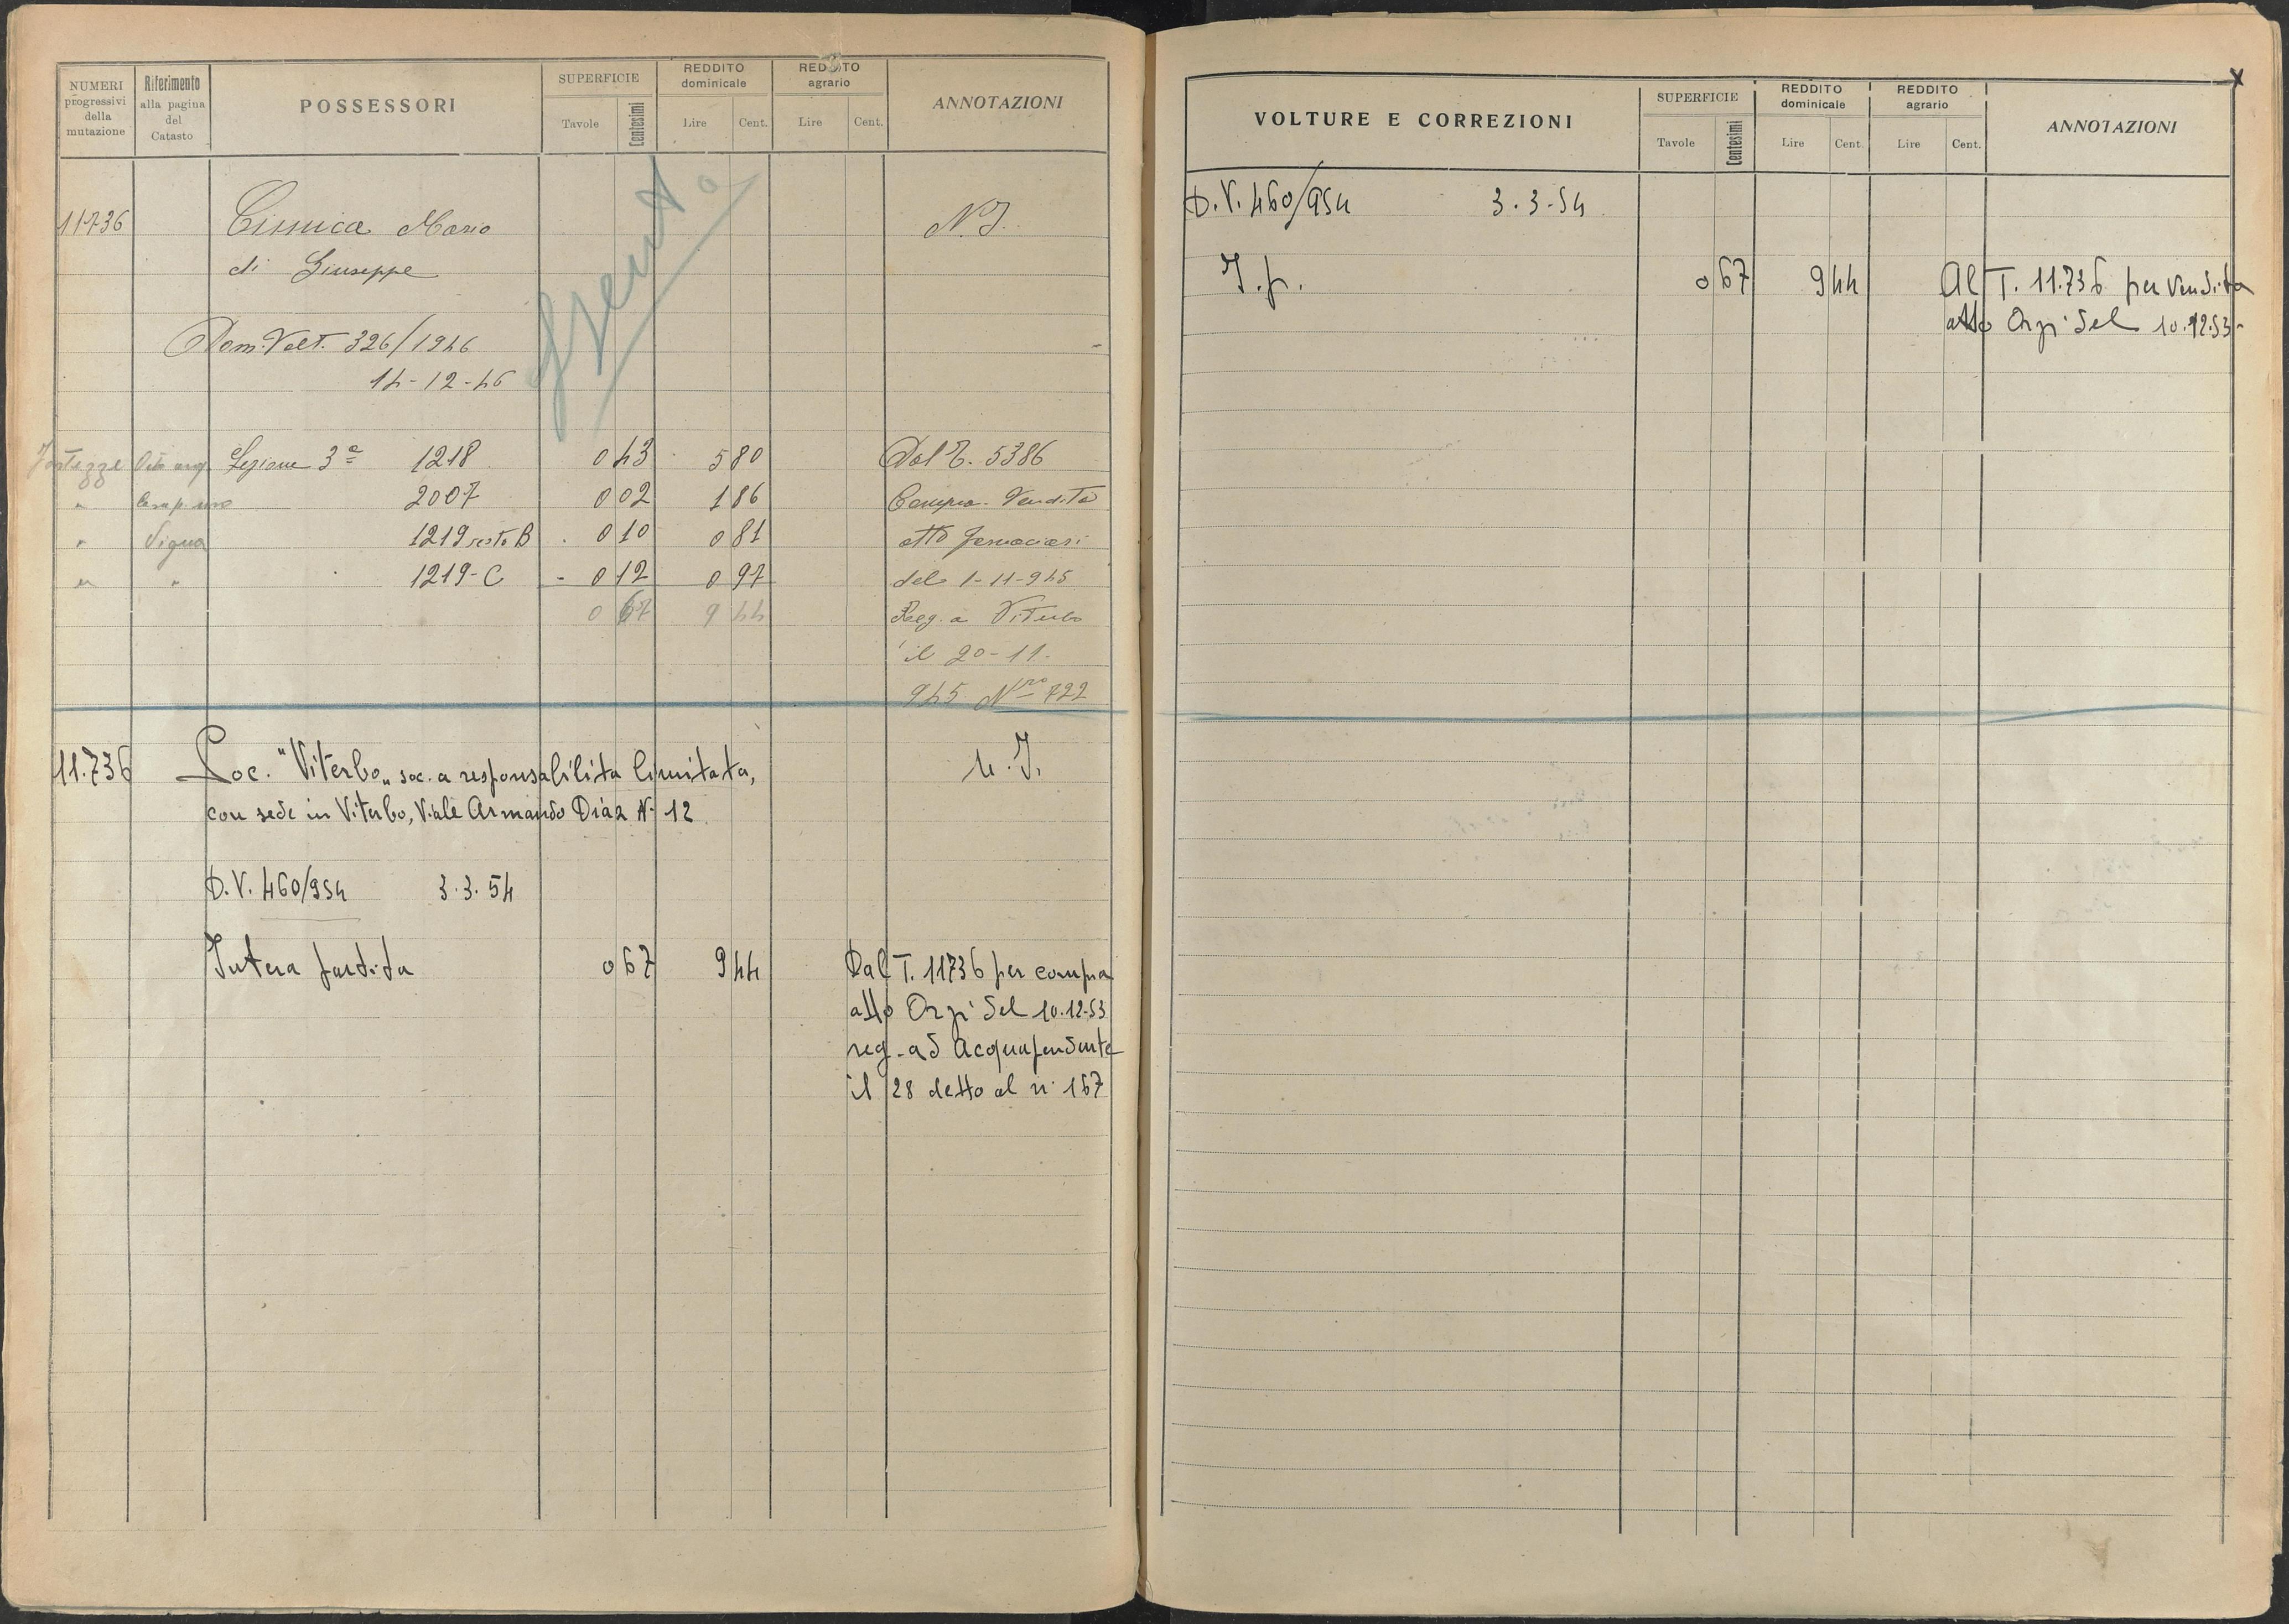 NUMERI progressivi della mutazione
Riferimento alla pagina del Catasto
POSSESSORI
SUPERFICIE
Tavole Centesimi
REDDITO dominicale
Lire Cent.
REDDITO agrario
Lire Cent.
ANNOTAZIONI
11736 Mario N.I.
di Giuseppe
Dom. Volt. 326/1946
14-12-46
Sezione 3ª 1218 0 43 5 80 Dal T. 5386
2007 0 02 1 86 Compra-Vendita
Vigna 1219 resto B 0 10 0 81 atto
" " 1219-C 0 12 0 97 del 1-11-945
0 67 9 44 Reg. a Viterbo
il 20-11-
945 Nro 722
11.736 Soc. "Viterbo" soc. a responsabilità limitata, n.I.
con sede in Viterbo, Viale Armando Diaz N. 12
D.V. 460/954 3.3.54
Intera partita 0 67 9 44 Dal T. 11736 per compra
atto Orzi del 10.12.53
reg. ad Acquapendente
il 28 detto al n. 167
VOLTURE E CORREZIONI
SUPERFICIE
Tavole Centesimi
REDDITO dominicale
Lire Cent.
REDDITO agrario
Lire Cent.
ANNOTAZIONI
D.V. 460/954 3.3.54
I.p. 0 67 9 44 Al T. 11.736 per vendita
atto Orzi del 10.12.53-